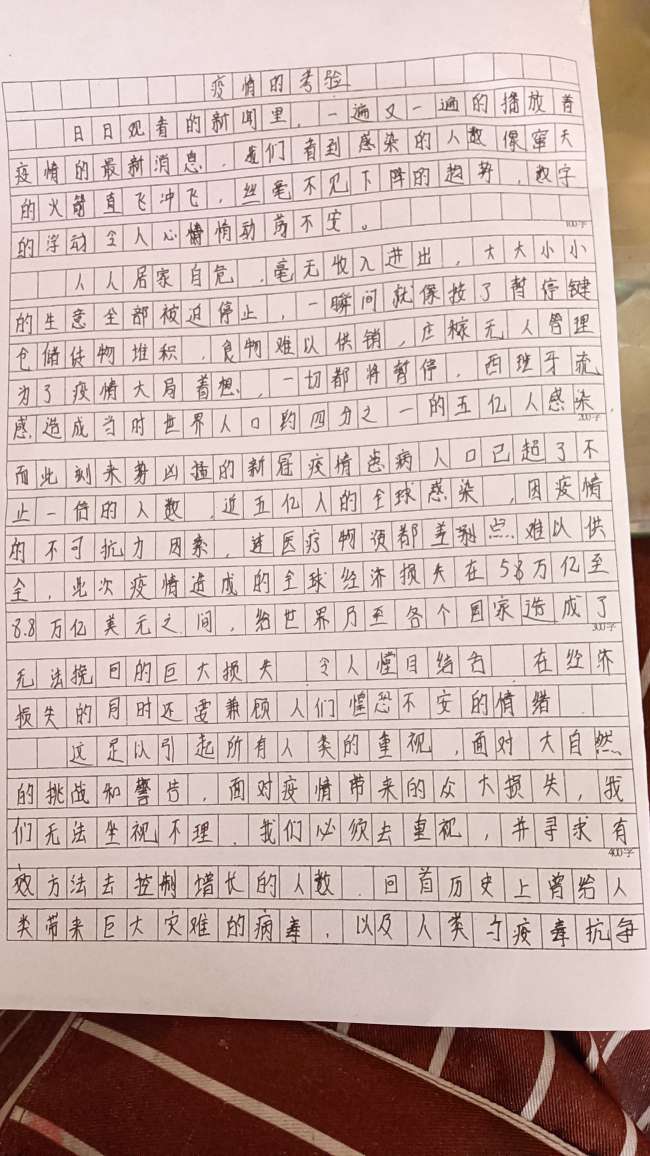 疫情的考验
日日观看的新闻里，一遍又一遍的播放着
疫情的最新消息，我们看到感染的人数像窜天
的火箭直飞冲飞，丝毫不见下降的趋势，数字
的浮动令人心情悄动荡不安。
100字
人人居家自危，毫无收入进出，大大小小
的生意全部被迫停止，一瞬间就像按了暂停键
仓储货物堆积，食物难以供销，庄稼无人管理
为了疫情大局着想，一切都将暂停，西班牙流
感造成当时世界人口约四分之一的五亿人感染，
200字
而此刻来势凶猛的新冠疫情患病人口已超了不
止一倍的人数，近五亿人的全球感染，因疫情
的不可抗力因素，连医疗物资都差到点难以供
全，此次疫情造成的全球经济损失在58万亿至
8.8万亿美元之间，给世界乃至各个国家造成了
300字
无法挽回的巨大损失，令人瞠目结舌，在经济
损失的同时还要兼顾人们惶恐不安的情绪．
这足以引起所有人类的重视，面对大自然
的挑战和警告，面对疫情带来的众大损失，我
们无法坐视不理．我们必须去重视，并寻求有
400字
效方法去控制增长的人数．回首历史上曾给人
类带来巨大灾难的病毒，以及人类与疫毒抗争